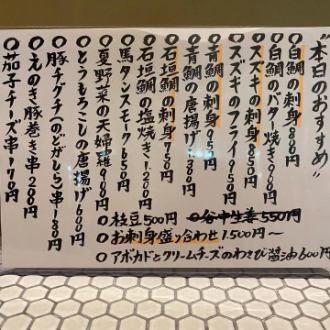 "本日のおすすめ"
○白鯛の刺身800円
○白鯛のバター焼き980円
○スズキの刺身850円
○スズキのフライ950円
○青鯛の刺身950円
○青鯛の唐揚げ980円
○石垣鯛の刺身950円
○石垣鯛の塩焼き〜1,200円
○馬タンスモーク650円
○夏野菜の天婦羅900円
○とうもろこしの唐揚げ600円
○豚チグチ(のどがしら)串180円
○えのき豚巻き串200円
○茄子チーズ串170円
○枝豆500円
○谷中生姜550円
○お刺身盛り合わせ1,500円〜
○アボカドとクリームチーズのわさび醤油600円